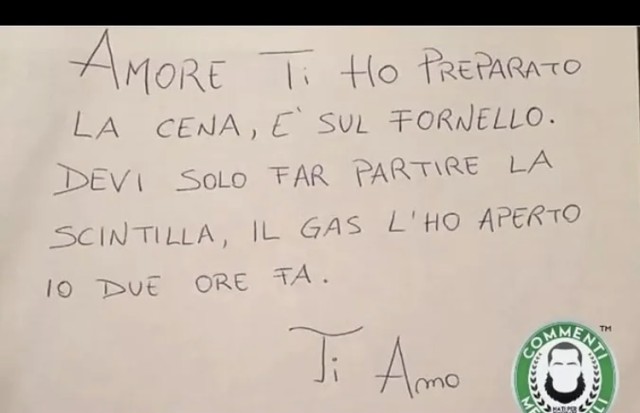 AMORE TI HO PREPARATO
LA CENA, E' SUL FORNELLO.
DEVI SOLO FAR PARTIRE LA
SCINTILLA, IL GAS L'HO APERTO
IO DUE ORE FA.
Ti Amo
COMMENTI
TM